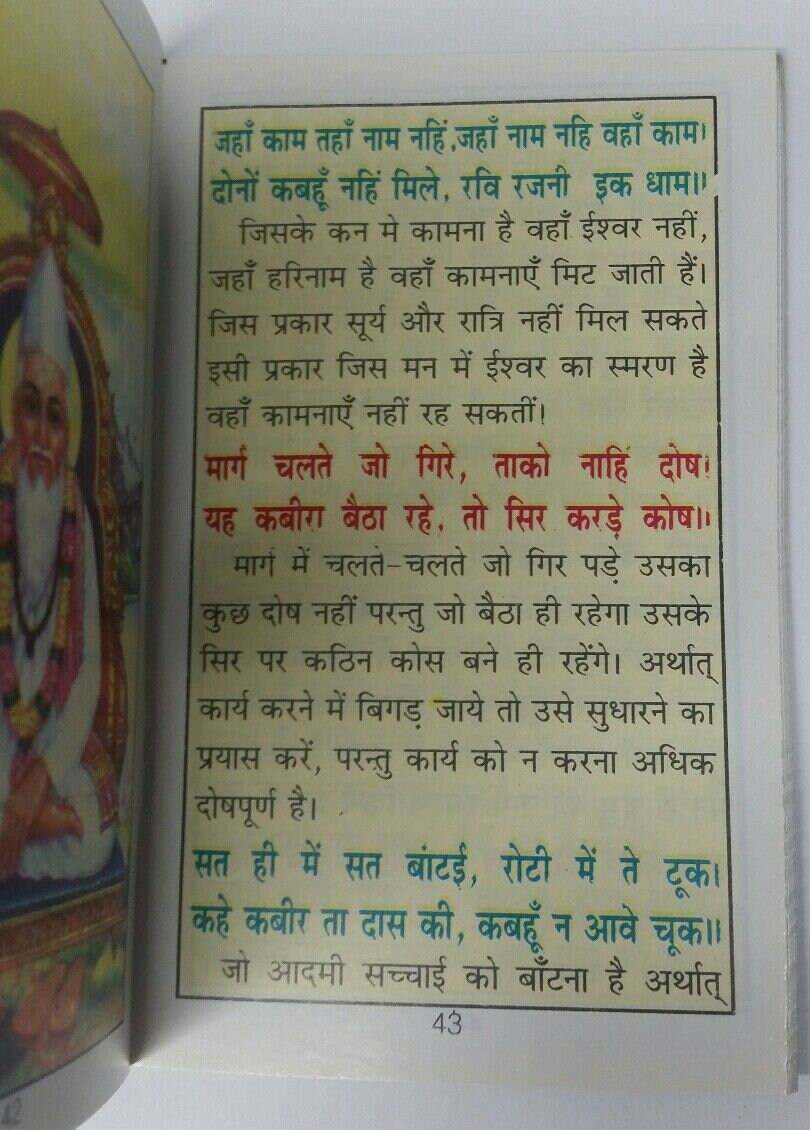 जहाँ काम तहाँ नाम नहिं,जहाँ नाम नहि वहाँ काम।
दोनों कबहूँ नहिं मिले, रवि रजनी इक धाम॥
जिसके कन मे कामना है वहाँ ईश्वर नहीं,
जहाँ हरिनाम है वहाँ कामनाएँ मिट जाती हैं।
जिस प्रकार सूर्य और रात्रि नहीं मिल सकते
इसी प्रकार जिस मन में ईश्वर का स्मरण है
वहाँ कामनाएँ नहीं रह सकतीं!
मार्ग चलते जो गिरे, ताको नाहिं दोष।
यह कबीरा बैठा रहे, तो सिर करड़े कोष॥
मार्ग में चलते-चलते जो गिर पड़े उसका
कुछ दोष नहीं परन्तु जो बैठा ही रहेगा उसके
सिर पर कठिन कोस बने ही रहेंगे। अर्थात्
कार्य करने में बिगड़ जाये तो उसे सुधारने का
प्रयास करें, परन्तु कार्य को न करना अधिक
दोषपूर्ण है।
सत ही में सत बांटई, रोटी में ते टूक।
कहे कबीर ता दास की, कबहूँ न आवे चूक॥
जो आदमी सच्चाई को बाँटना है अर्थात्
43